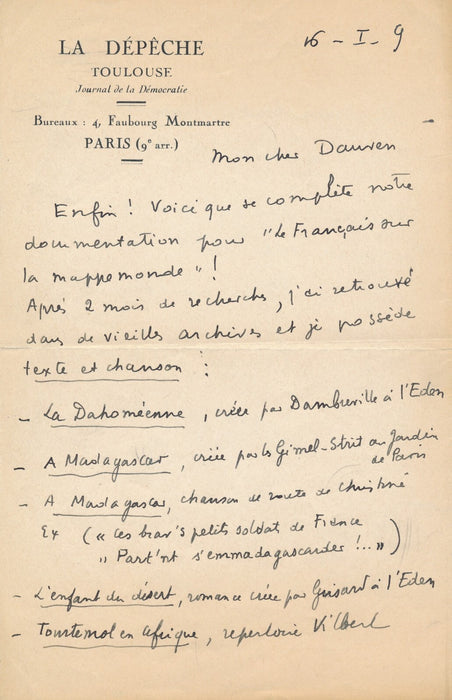 LA DÉPÊCHE
TOULOUSE
Journal de la Démocratie
Bureaux : 4, Faubourg Montmartre
PARIS (9e arr.)
16 - I - 9
Mon cher Dauven
Enfin ! Voici que se complète notre
documentation pour "Le Français sur
la mappemonde" !
Après 2 mois de recherches, j'ai retrouvé
dans de vieilles archives et je possède
texte et chanson :
- La Dahoméenne, créée par Dambreville à l'Eden
- A Madagascar, créée par les Gimel-Strit au Jardin
de Paris
- A Madagascar, chanson de route de Christiné
Ex (" Ces brav's petits soldats de France
" Part'nt s'emmadagascarder !.. ")
- L'enfant du désert, romance créée par Guisard à l'Eden
- Tourtemol en Afrique, repertoire Vilbert